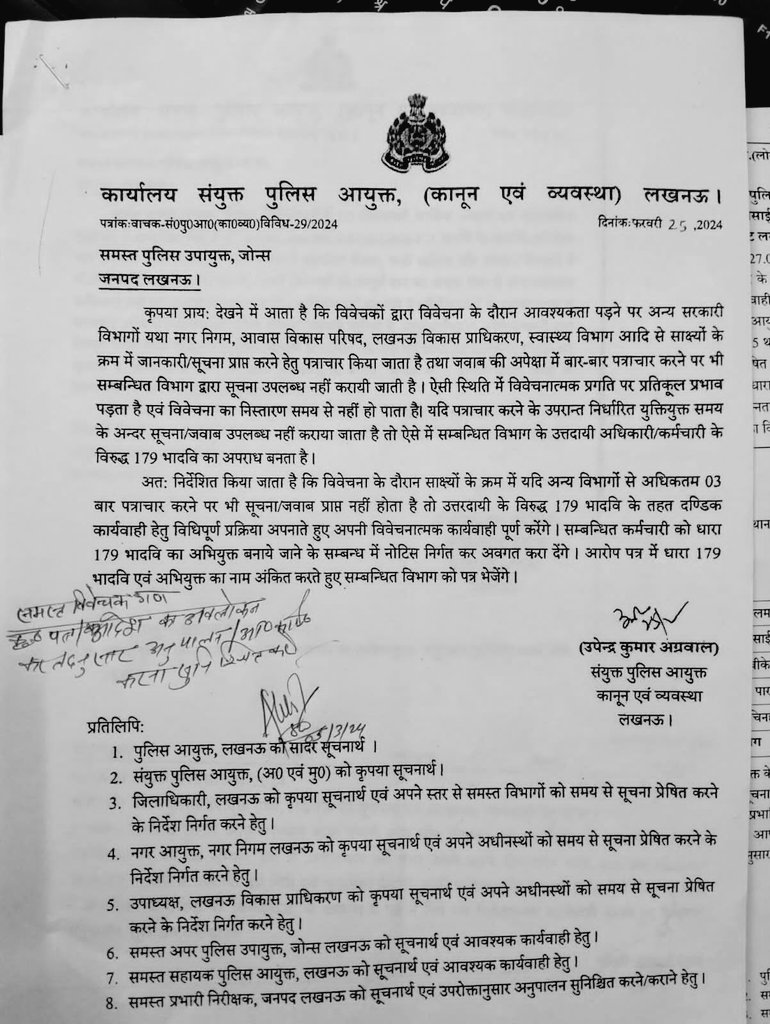 कार्यालय संयुक्त पुलिस आयुक्त, (कानून एवं व्यवस्था) लखनऊ।
पत्रांक:वाचक-सं0पु0आ0(का0व्य0)विविध-29/2024 दिनांक:फरवरी 25 ,2024
समस्त पुलिस उपायुक्त, जोन्स
जनपद लखनऊ।
कृपया प्राय: देखने में आता है कि विवेचकों द्वारा विवेचना के दौरान आवश्यकता पड़ने पर अन्य सरकारी
विभागों यथा नगर निगम, आवास विकास परिषद, लखनऊ विकास प्राधिकरण, स्वास्थ्य विभाग आदि से साक्ष्यों के
क्रम में जानकारी/सूचना प्राप्त करने हेतु पत्राचार किया जाता है तथा जवाब की अपेक्षा में बार-बार पत्राचार करने पर भी
सम्बन्धित विभाग द्वारा सूचना उपलब्ध नहीं करायी जाती है। ऐसी स्थिति में विवेचनात्मक प्रगति पर प्रतिकूल प्रभाव
पड़ता है एवं विवेचना का निस्तारण समय से नहीं हो पाता है। यदि पत्राचार करने के उपरान्त निर्धारित युक्तियुक्त समय
के अन्दर सूचना/जवाब उपलब्ध नहीं कराया जाता है तो ऐसे में सम्बन्धित विभाग के उत्तदायी अधिकारी/कर्मचारी के
विरुद्ध 179 भादवि का अपराध बनता है।
अत: निर्देशित किया जाता है कि विवेचना के दौरान साक्ष्यों के क्रम में यदि अन्य विभागों से अधिकतम 03
बार पत्राचार करने पर भी सूचना/जवाब प्राप्त नहीं होता है तो उत्तरदायी के विरुद्ध 179 भादवि के तहत दण्डिक
कार्यवाही हेतु विधिपूर्ण प्रक्रिया अपनाते हुए अपनी विवेचनात्मक कार्यवाही पूर्ण करेंगे। सम्बन्धित कर्मचारी को धारा
179 भादवि का अभियुक्त बनाये जाने के सम्बन्ध में नोटिस निर्गत कर अवगत करा देंगे। आरोप पत्र में धारा 179
भादवि एवं अभियुक्त का नाम अंकित करते हुए सम्बन्धित विभाग को पत्र भेजेंगे।
समस्त विवेचक गण
आदेश का अवलोकन
कर तदनुसार अनुपालन
करना सुनिश्चित करें
05/3/24
(उपेन्द्र कुमार अग्रवाल)
संयुक्त पुलिस आयुक्त
कानून एवं व्यवस्था
लखनऊ।
प्रतिलिपि:
1. पुलिस आयुक्त, लखनऊ को सादर सूचनार्थ ।
2. संयुक्त पुलिस आयुक्त, (अ0 एवं मु0) को कृपया सूचनार्थ।
3. जिलाधिकारी, लखनऊ को कृपया सूचनार्थ एवं अपने स्तर से समस्त विभागों को समय से सूचना प्रेषित करने
के निर्देश निर्गत करने हेतु।
4. नगर आयुक्त, नगर निगम लखनऊ को कृपया सूचनार्थ एवं अपने अधीनस्थों को समय से सूचना प्रेषित करने के
निर्देश निर्गत करने हेतु।
5. उपाध्यक्ष, लखनऊ विकास प्राधिकरण को कृपया सूचनार्थ एवं अपने अधीनस्थों को समय से सूचना प्रेषित
करने के निर्देश निर्गत करने हेतु।
6. समस्त अपर पुलिस उपायुक्त, जोन्स लखनऊ को सूचनार्थ एवं आवश्यक कार्यवाही हेतु।
7. समस्त सहायक पुलिस आयुक्त, लखनऊ को सूचनार्थ एवं आवश्यक कार्यवाही हेतु।
8. समस्त प्रभारी निरीक्षक, जनपद लखनऊ को सूचनार्थ एवं उपरोक्तानुसार अनुपालन सुनिश्चित करने/कराने हेतु।